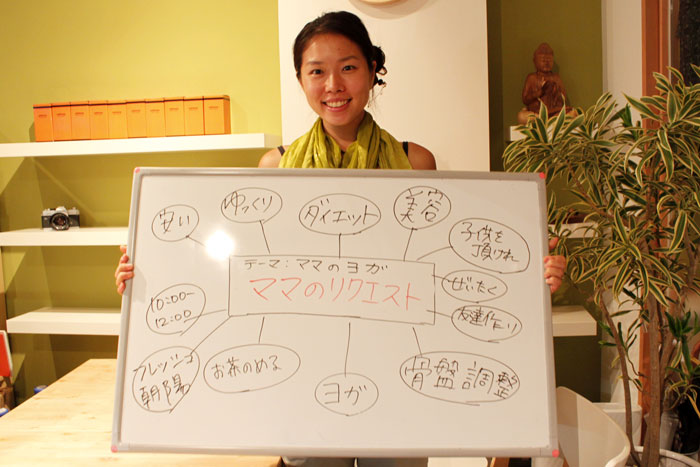 安い
ゆっくり
ダイエット
美容
子供を
頂けれ
テーマ：ママのヨガ
ママのリクエスト
ぜいたく
10:00~
12:00
友達作り
フレッシュ
朝陽
お茶のめる
ヨガ
骨盤調整